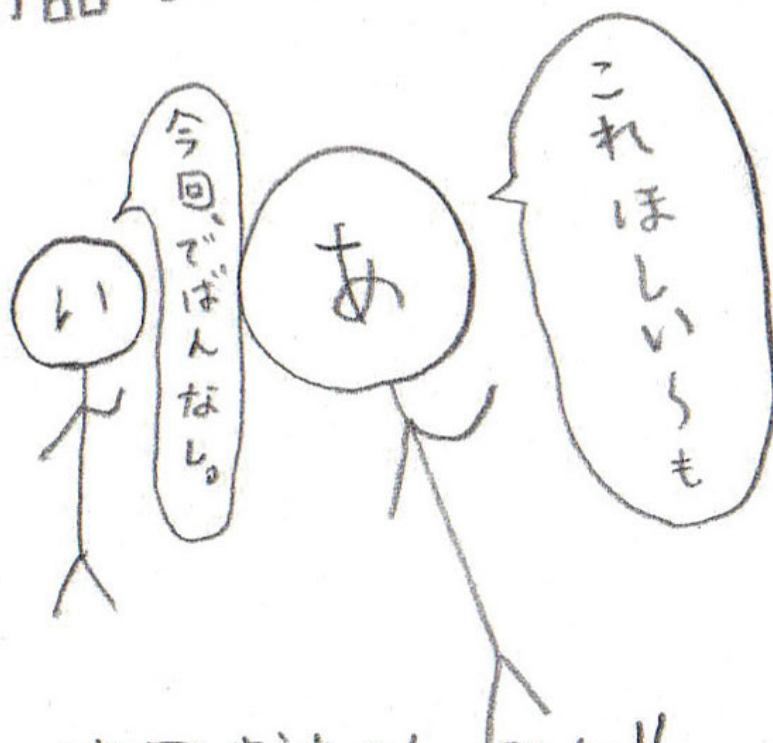 これほしい〜も
あ
今回、でばんなし。
い